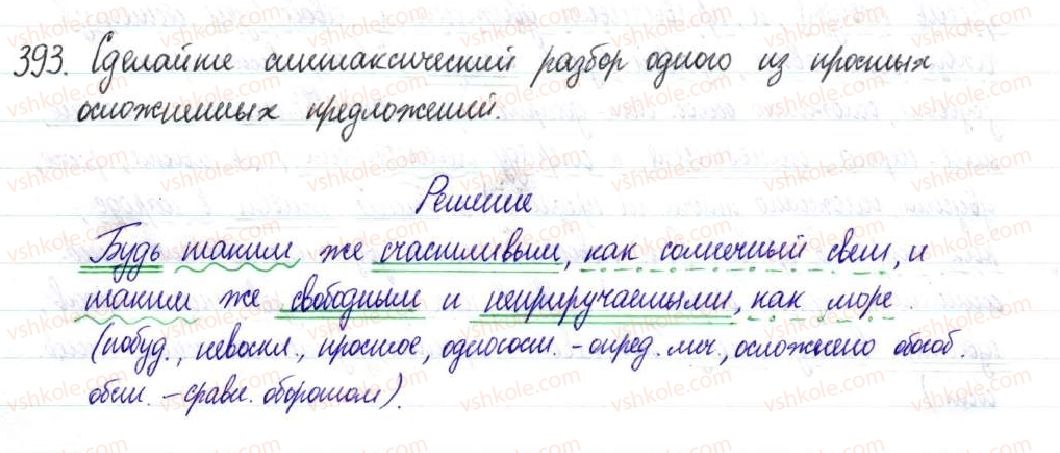 393. Сделайте синтаксический разбор одного из простых
осложненных предложений.
Решение
Будь таким же счастливым, как солнечный свет, и
таким же свободным и неприручаемыми, как море
(побуд., невоскл., простое, односост. - опред. лич., осложнено обособ.
обст. - сравн. оборотом).